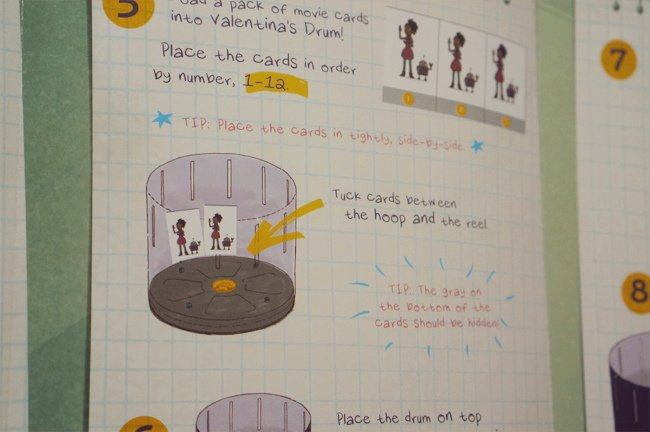 5
a pack of movie cards
into Valentina's Drum!
Place the cards in order
by number, 1-12.
1 2 3
TIP: Place the cards in tightly, side-by-side.
Tuck cards between
the hoop and the reel
TIP: The gray on
the bottom of the
cards should be hidden!
6
Place the drum on top
7
8